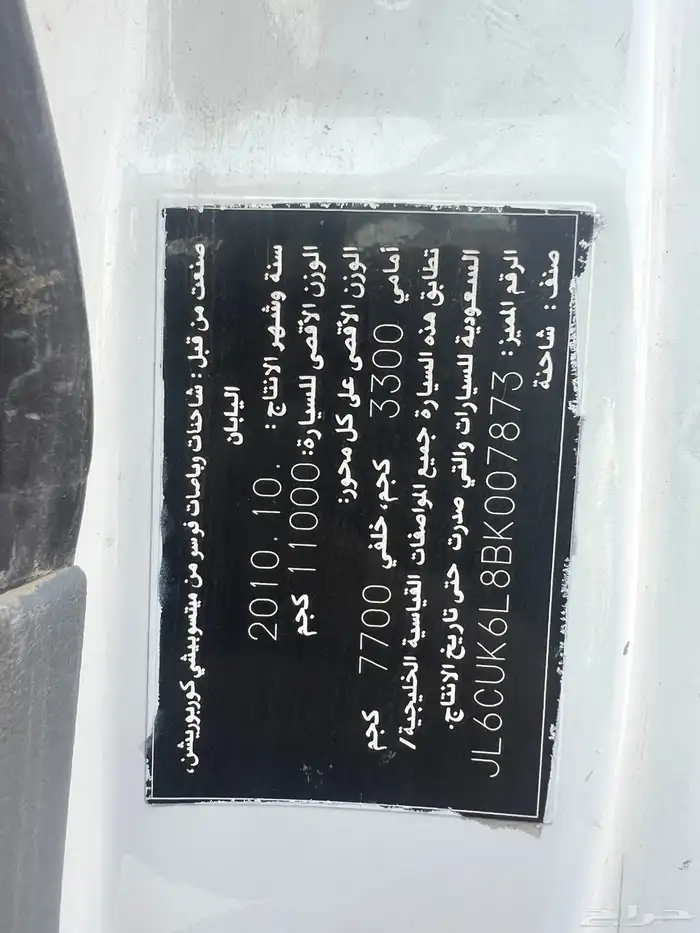 صنعت من قبل : شاحنات وباصات فوسو من ميتسوبيشي كوربوريشن،
اليابان
سنة وشهر الانتاج : 2010.10.
الوزن الأقصى للسيارة: 11000 كجم
الوزن الأقصى على كل محور:
أمامي 3300 كجم، خلفي 7700 كجم
تطابق هذه السيارة جميع المواصفات القياسية الخليجية/
السعودية للسيارات والتي صدرت حتى تاريخ الانتاج.
الرقم المميز: JL6CUK6L8BK007873
صنف : شاحنة
حراج